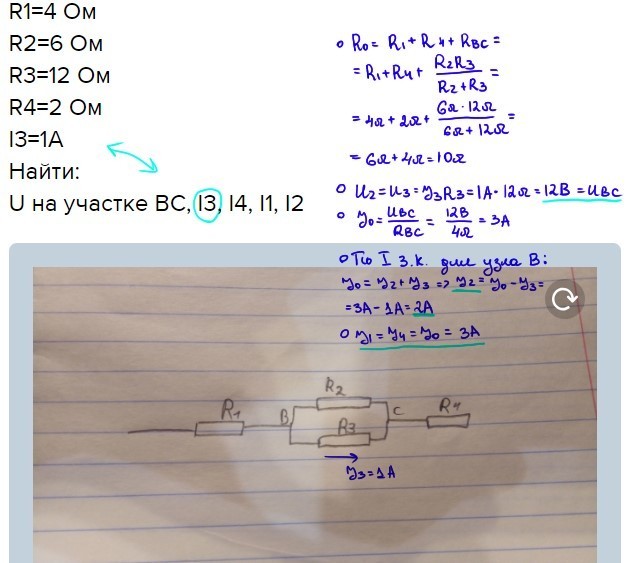 R1=4 Ом
R2=6 Ом
R3=12 Ом
R4=2 Ом
I3=1А
Найти:
U на участке ВС, I3, I4, I1, I2
R₀ = R₁ + R₄ + R_BC =
= R₁ + R₄ + R₂R₃ / (R₂ + R₃) =
= 4Ω + 2Ω + 6Ω · 12Ω / (6Ω + 12Ω) =
= 6Ω + 4Ω = 10Ω
U₂ = U₃ = У₃R₃ = 1А · 12Ω = 12В = U_BC
У₀ = U_BC / R_BC = 12В / 4Ω = 3А
По I З.К. для узла В:
У₀ = У₂ + У₃ => У₂ = У₀ - У₃ =
= 3А - 1А = 2А
У₁ = У₄ = У₀ = 3А
R₂
R₁ B C R₄
R₃
У₃ = 1А